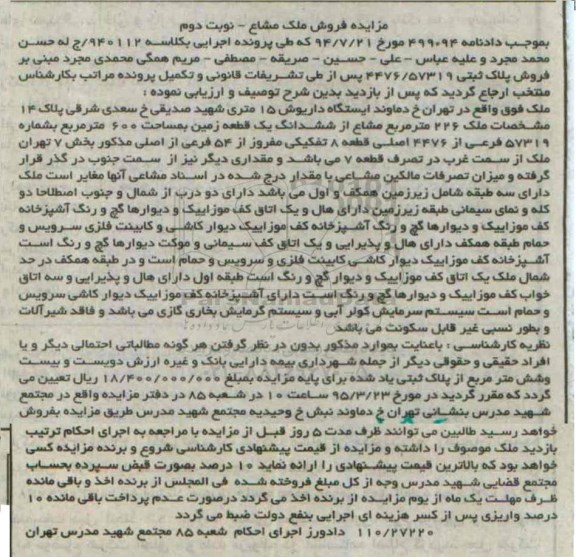 مزایده فروش ملک مشاع - نوبت دوم
بموجب دادنامه ۴۹۹۰۹۴ مورخ ۹۴/۷/۲۱ که طی پرونده اجرایی بکلاسه ۹۴۰۱۱۲/ج له حسن
محمد مجرد و علیه عباس - علی - حسین - صریقه - مصطفی - مریم همگی محمدی مجرد مبنی بر
فروش پلاک ثبتی ۴۴۷۶/۵۷۳۱۹ پس از طی تشریفات قانونی و تکمیل پرونده مراتب بکارشناس
منتخب ارجاع گردید که پس از بازدید بدین شرح توصیف و ارزیابی نموده :
ملک فوق واقع در تهران خ دماوند ایستگاه داریوش ۱۵ متری شهید صدیقی خ سعدی شرقی پلاک ۱۴
مشخصات ملک ۲۲۶ مترمربع مشاع از ششدانگ یک قطعه زمین بمساحت ۶۰۰ مترمربع بشماره
۵۷۳۱۹ فرعی از ۴۴۷۶ اصلی قطعه ۸ تفکیکی مفروز از ۵۴ فرعی از اصلی مذکور بخش ۷ تهران
ملک از سمت غرب در تصرف قطعه ۷ می باشد و مقداری دیگر نیز از سمت جنوب در گذر قرار
گرفته و میزان تصرفات مالکین مشاعی با مقدار درج شده در اسناد مشاعی آنها مغایر است ملک
دارای سه طبقه شامل زیرزمین همکف و اول می باشد دارای دو درب از شمال و جنوب اصطلاحا دو
کله و نمای سیمانی طبقه زیرزمین دارای هال و یک اتاق کف موزاییک و دیوارها گچ و رنگ آشپزخانه
کف موزاییک و دیوارها گچ و رنگ آشپزخانه کف موزاییک دیوار کاشی و کابینت فلزی سرویس و
حمام طبقه همکف دارای هال و پذیرایی و یک اتاق کف سیمانی و موکت دیوارها گچ و رنگ است
آشپزخانه کف موزاییک دیوار کاشی کابینت فلزی و سرویس و حمام است و در طبقه همکف در حد
شمال ملک یک اتاق کف موزاییک و دیوار گچ و رنگ است طبقه اول دارای هال و پذیرایی و سه اتاق
خواب کف موزاییک و دیوارها گچ و رنگ است دارای آشپزخانه کف موزاییک دیوار کاشی سرویس
و حمام است سیستم سرمایش کولر آبی و سیستم گرمایش بخاری گازی می باشد و فاقد شیرآلات
و بطور نسبی غیر قابل سکونت می باشد
نظریه کارشناسی : باعنایت بموارد مذکور بدون در نظر گرفتن هر گونه مطالباتی احتمالی دیگر و یا
افراد حقیقی و حقوقی دیگر از جمله شهرداری بیمه دارایی بانک و غیره ارزش دویست و بیست
وشش متر مربع از پلاک ثبتی یاد شده برای پایه مزایده بمبلغ ۱۸/۴۰۰/۰۰۰/۰۰۰ ریال تعیین می
گردد که مقرر گردید در مورخ ۹۵/۳/۲۳ ساعت ۱۰ در شعبه ۸۵ در دفتر مزایده واقع در مجتمع
شهید مدرس بنشانی تهران خ دماوند نبش خ وحیدیه مجتمع شهید مدرس طریق مزایده بفروش
خواهد رسید طالبین می توانند ظرف مدت ۵ روز قبل از مزایده با مراجعه به اجرای احکام ترتیب
بازدید ملک موصوف را داشته و مزایده از قیمت پیشنهادی کارشناسی شروع و برنده مزایده کسی
خواهد بود که بالاترین قیمت پیشنهادی را ارائه نماید ۱۰ درصد بصورت قبض سپرده بحساب
مجتمع قضایی شهید مدرس وجه از کل مبلغ فروخته شده فی المجلس از برنده اخذ و باقی مانده
ظرف مهلت یک ماه از یوم مزایده از برنده اخذ می گردد درصورت عدم پرداخت باقی مانده ۱۰
درصد واریزی پس از کسر هزینه ای اجرایی بنفع دولت ضبط می گردد
۱۱۰/۲۷۲۲۰ دادورز اجرای احکام شعبه ۸۵ مجتمع شهید مدرس تهران